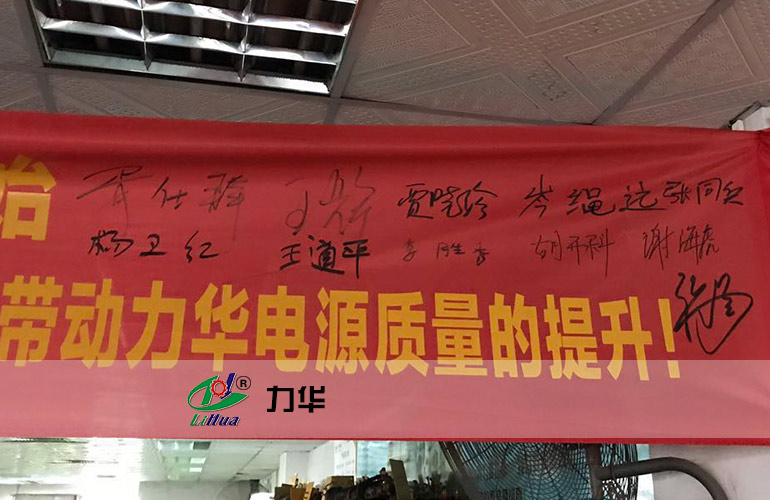 始
贾晓玲 岑绳远 张同
杨卫红 王道平 胡开科 谢海虎
带动力华电源质量的提升！
LiHua ® 力华